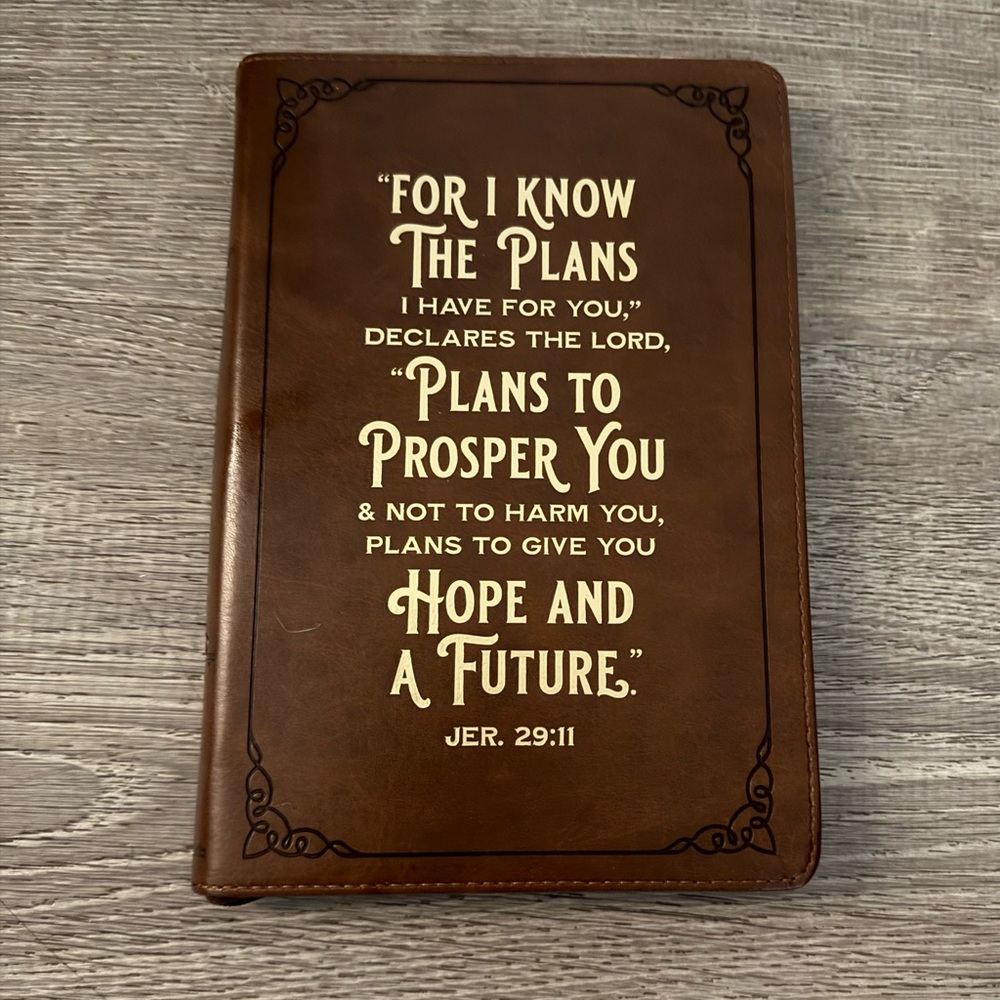 “FOR I KNOW
THE PLANS
I HAVE FOR YOU,”
DECLARES THE LORD,
“PLANS TO
PROSPER YOU
& NOT TO HARM YOU,
PLANS TO GIVE YOU
HOPE AND
A FUTURE.”
JER. 29:11